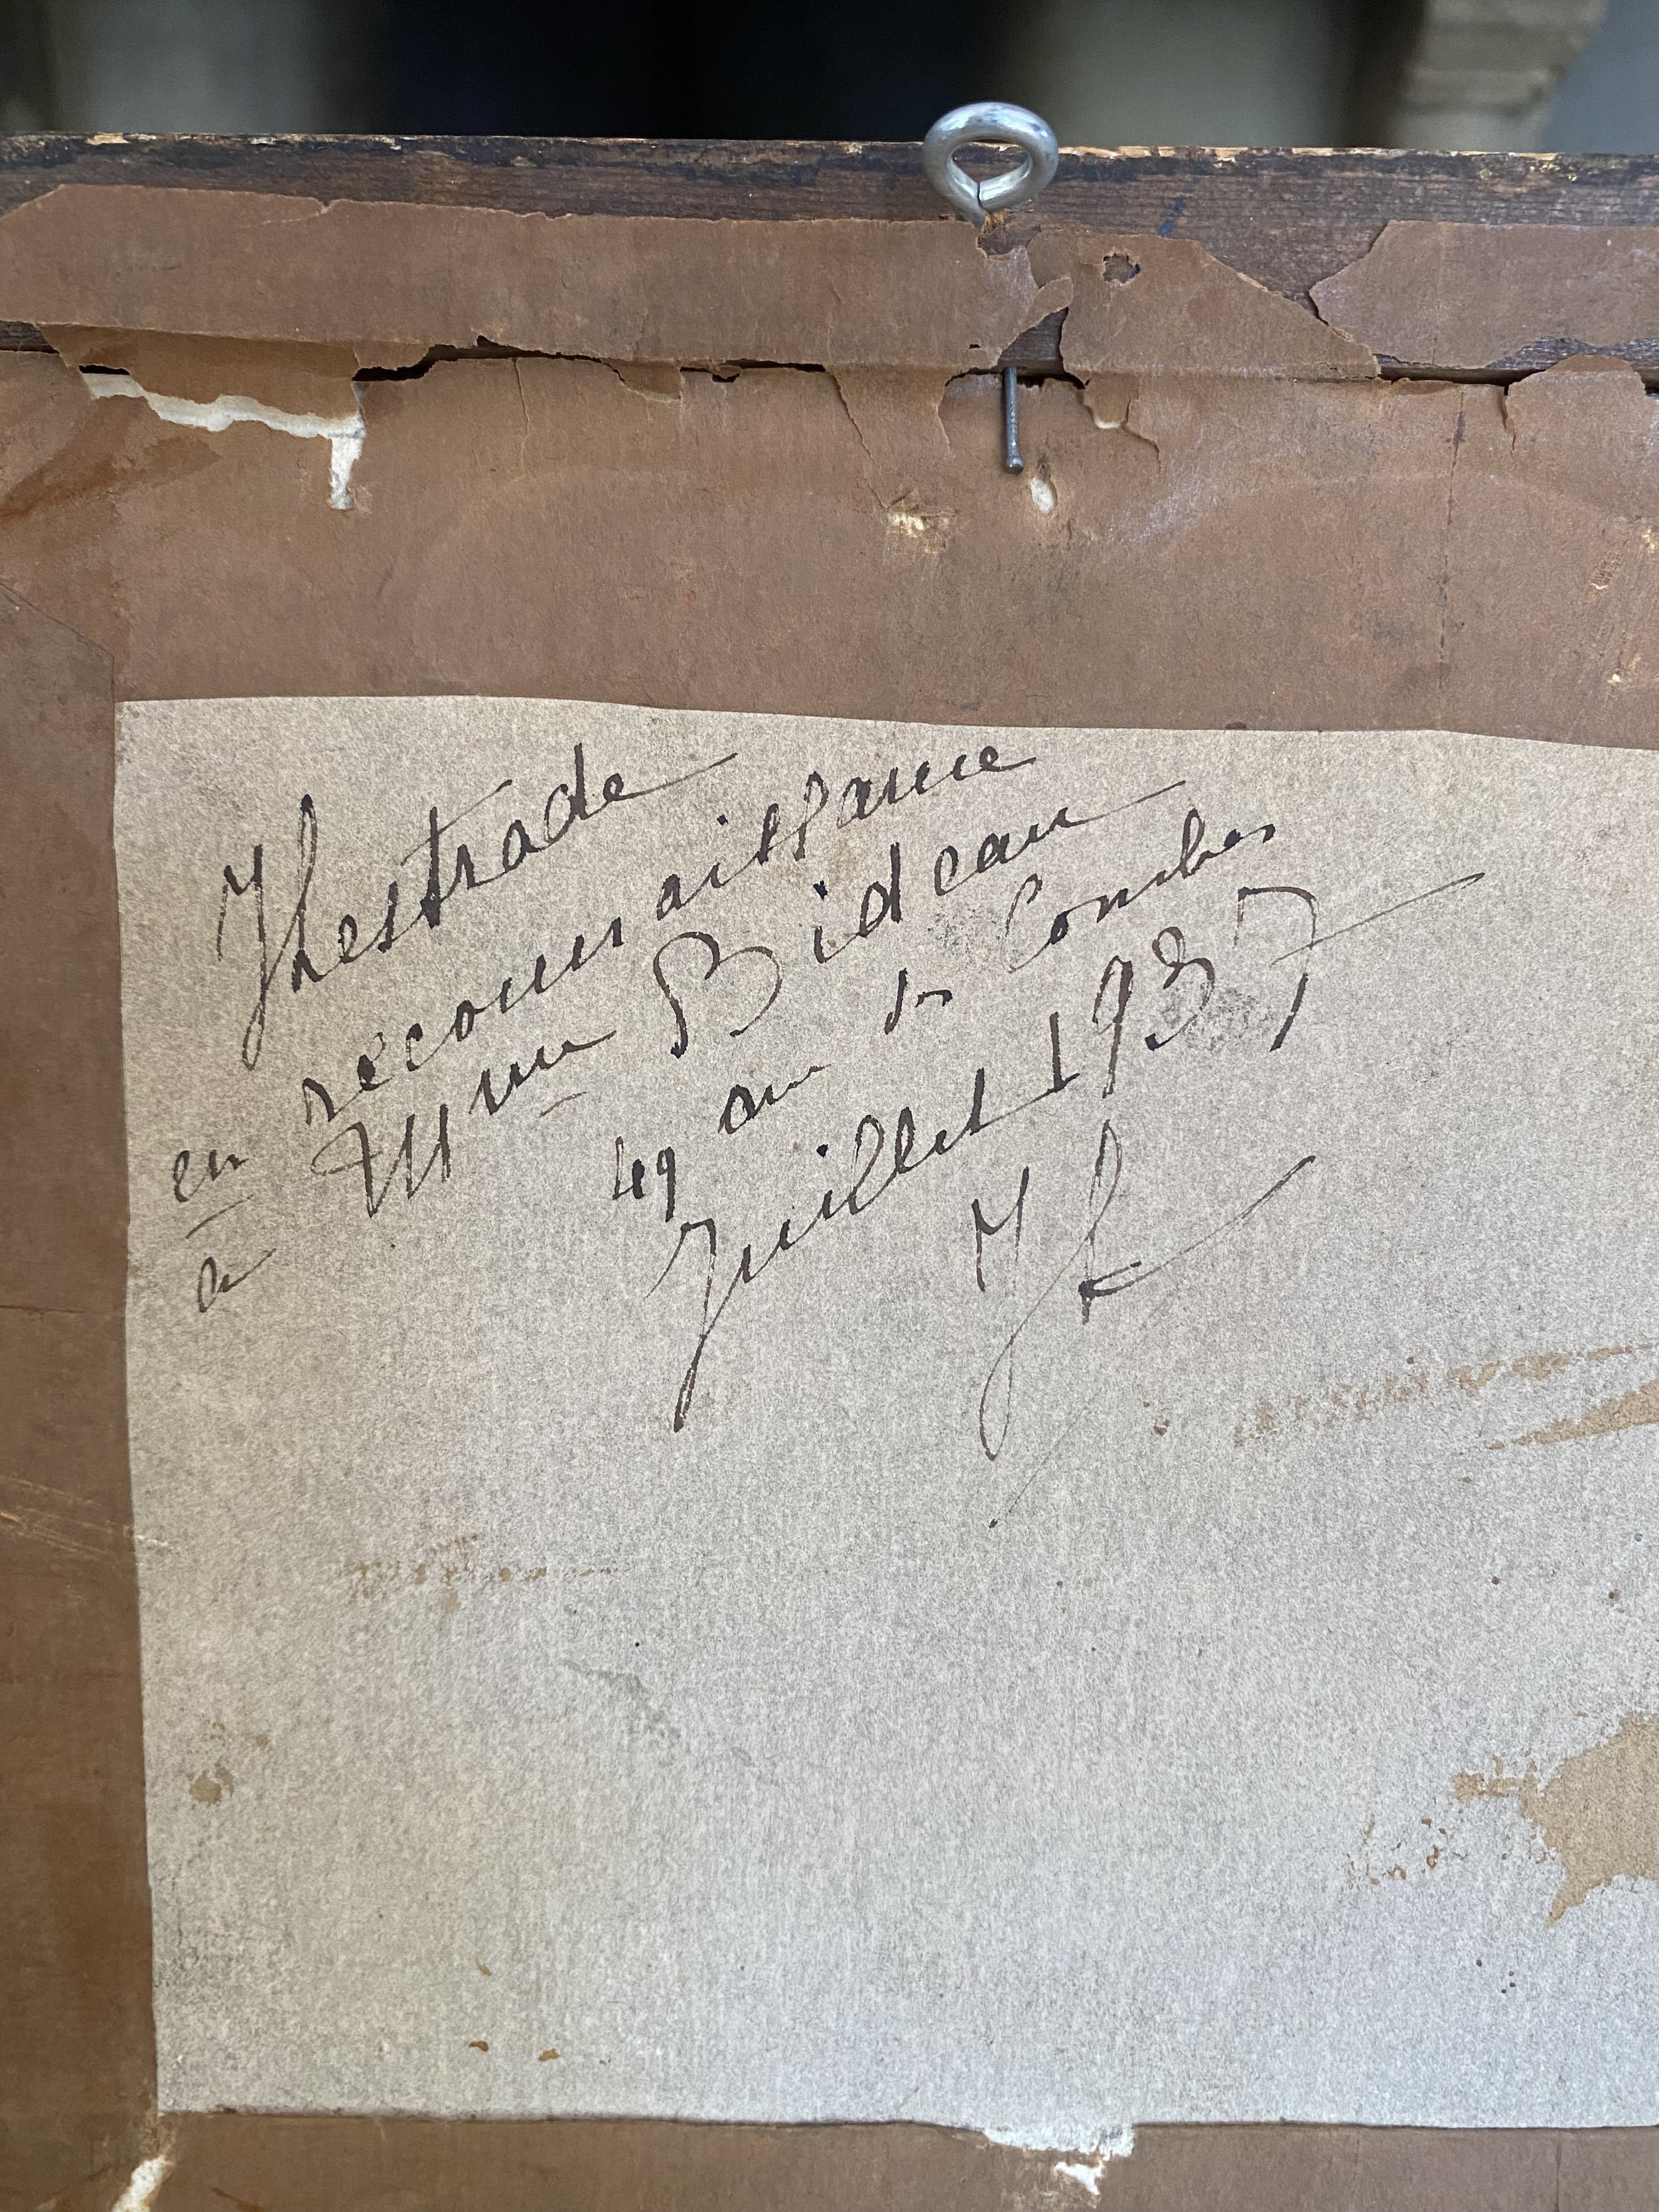 en reconnaissance
a Mme Bideau
49 av des Combes
Juillet 1937